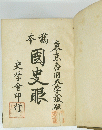 東京帝國大學藏版
稿本
國史眼
史學會印行